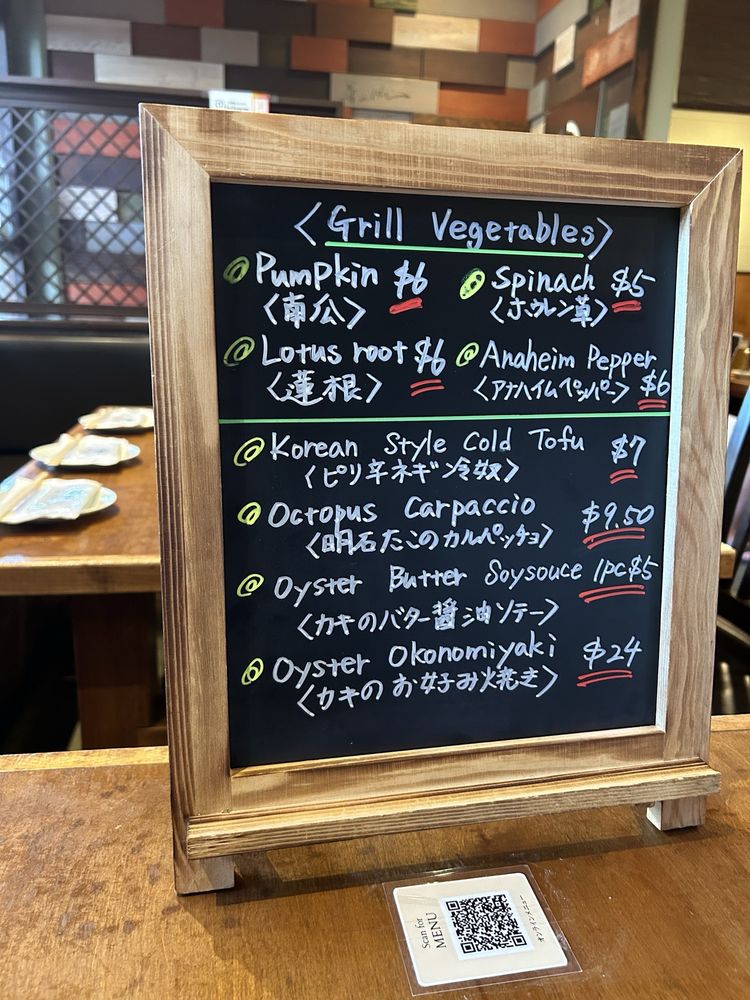 〈Grill Vegetables〉
@ Pumpkin $6
〈南瓜〉
@ Spinach $5
〈ホウレン草〉
@ Lotus root $6
〈蓮根〉
@ Anaheim Pepper
〈アナハイムペッパー〉 $6
@ Korean Style Cold Tofu $7
〈ピリ辛ネギ冷奴〉
@ Octopus Carpaccio $9.50
〈明石たこのカルパッチョ〉
@ Oyster Butter Soysouce 1pc $5
〈カキのバター醤油ソテー〉
@ Oyster Okonomiyaki $24
〈カキのお好み焼き〉
Scan for
MENU
オンラインメニュー